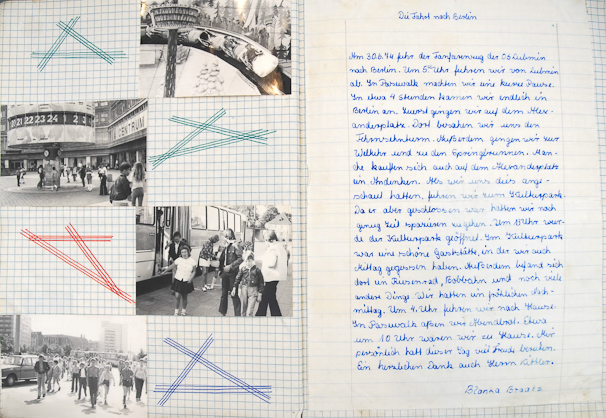 20 21 22 23 24
CENTRUM
Die Fahrt nach Berlin
Am 30.6.74 fuhr der Fanfarenzug der OS Lubmin
nach Berlin. Um 5⁰⁰ Uhr fuhren wir von Lubmin
ab. In Pasewalk machten wir eine kurze Pause.
In etwa 4 Stunden kamen wir endlich in
Berlin an. Zuerst gingen wir auf dem Alex-
anderplatz. Dort besahen wir uns den
Fernsehturm. Außerdem gingen wir zur
Weltuhr und zu den Springbrunnen. Man-
che kauften sich auch auf dem Alexanderplatz
ein Andenken. Als wir uns dies ange-
schaut hatten, fuhren wir zum Kulturpark.
Da er aber geschlossen war hatten wir noch
genug Zeit spazieren zu gehen. Um 11 Uhr wur-
de der Kulturpark geöffnet. Im Kulturpark
war eine schöne Gaststätte, in der wir auch
Mittag gegessen haben. Außerdem befand sich
dort ein Riesenrad, Bobbahn und noch viele
andere Dinge. Wir hatten ein fröhlichen Nach-
mittag. Um 4 Uhr fuhren wir nach Hause.
In Pasewalk aßen wir Abendbrot. Etwa
um 10 Uhr waren wir zu Hause. Mir
persönlich hatt dieser Tag viel Freude bereitet.
Ein herzlichen Dank auch Herrn